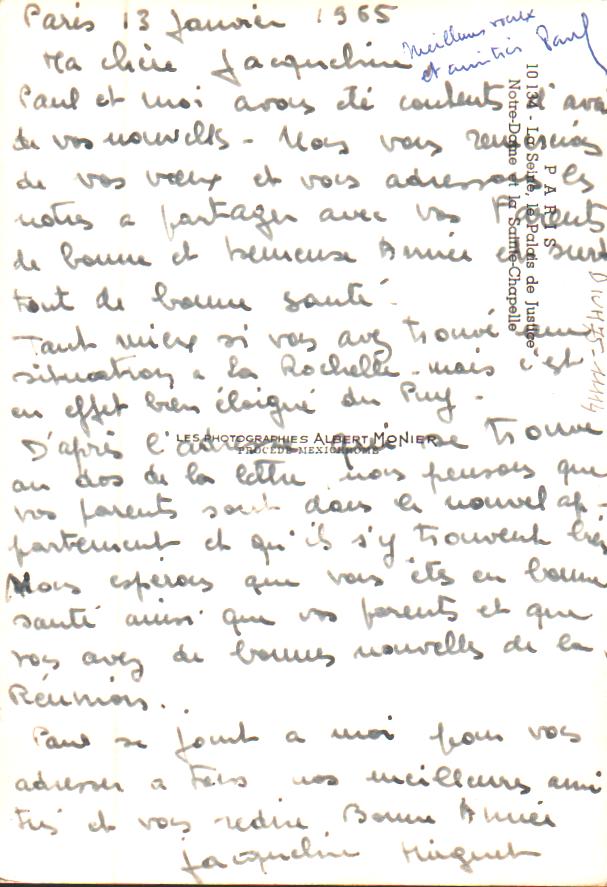 Paris 13 Janvier 1965
Ma chère Jacqueline
Meilleurs voeux
et amitiés Paul
Paul et moi avons été contents d'avoi
de vos nouvelles - Nous vous remercions
de vos vœux et vous adressons les
notres a partager avec vos Parents
de bonne et heureuse Année et sur
tout de bonne santé.
Tant mieux si vous avez trouvé une
situation a La Rochelle - mais c'est
en effet bien éloigné du Puy -
D'après l'adresse qui se trouve
au dos de la lettre nous pensons que
vos parents sont dans le nouvel ap-
partement et qu'ils s'y trouvent bien
Nous espérons que vous êtes en bonne
santé ainsi que vos parents et que
vous avez de bonnes nouvelles de la
Réunion.
Paul se joint a moi pour vous
adresser a tous nos meilleures ami
tiés et vous redire Bonne Année
Jacqueline Huguet
PARIS
10134 - La Seine, le Palais de Justice
Notre-Dame et la Sainte-Chapelle
LES PHOTOGRAPHIES ALBERT MONIER
PROCÉDÉ MEXICHROME